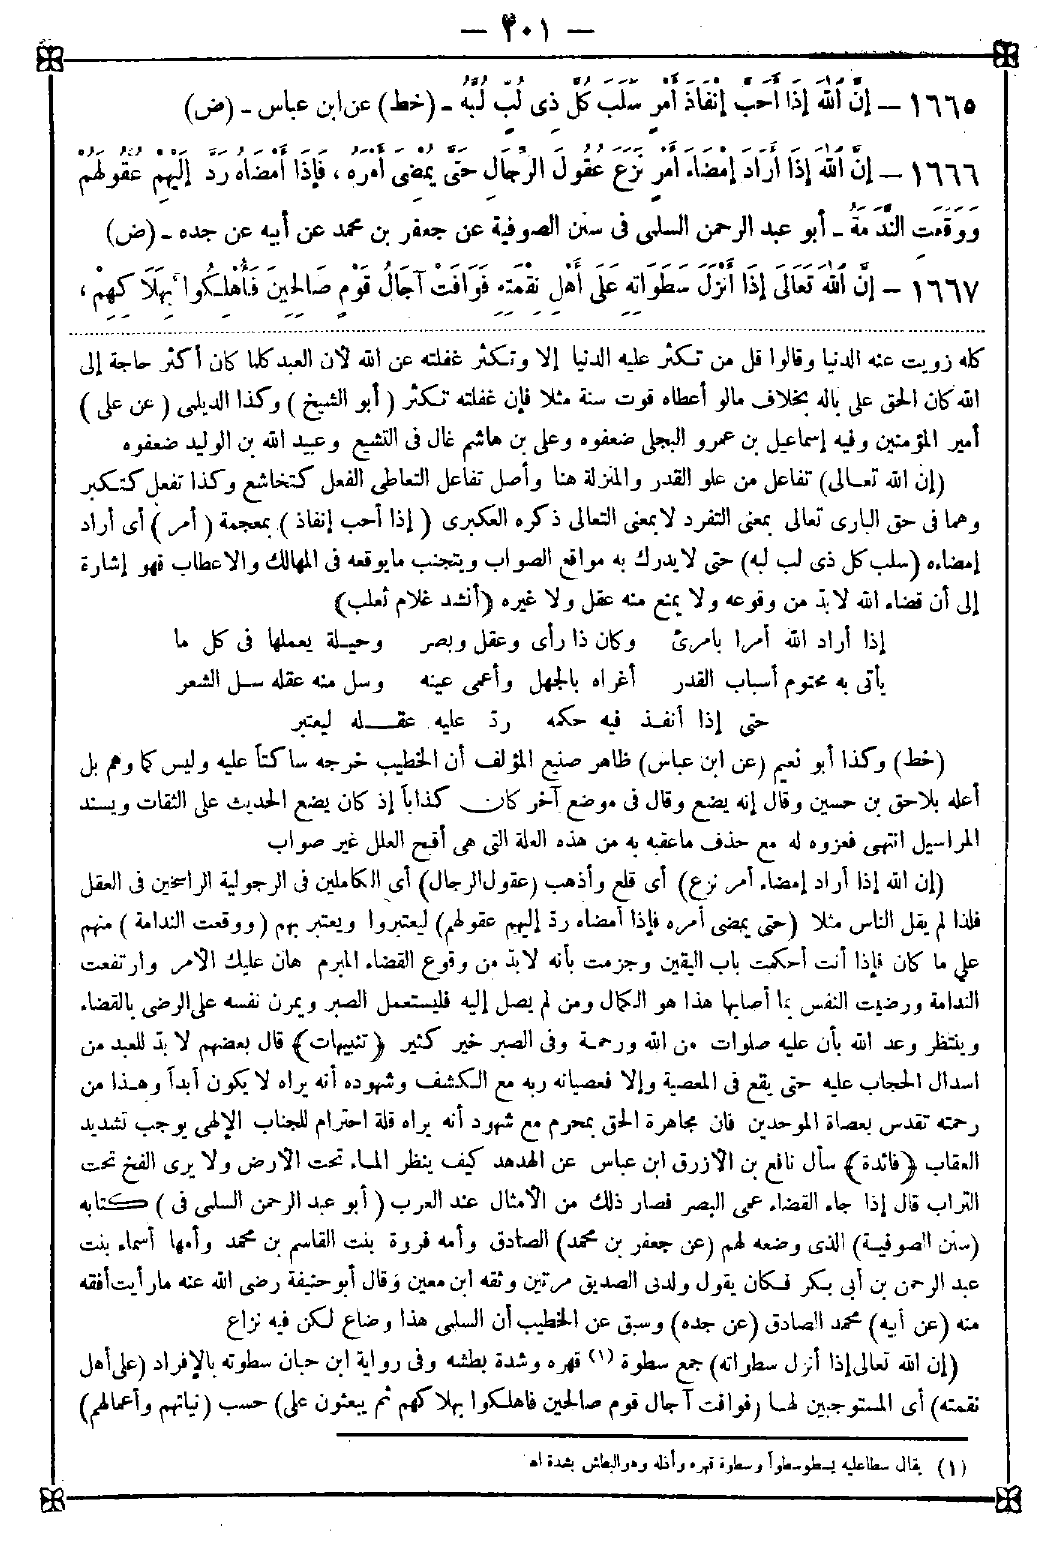 — ٣٠١ —
١٦٦٥ — إِنَّ اللهَ إِذَا أَحَبَّ إِنْفَاذَ أَمْرٍ سَلَبَ كُلَّ ذِى لُبٍّ لُبَّهُ ـ (خط) عن ابن عباس ـ (ض)
١٦٦٦ — إِنَّ اللهَ إِذَا أَرَادَ إِمْضَاءَ أَمْرٍ نَزَعَ عُقُولَ الرِّجَالِ حَتَّى يُمْضِىَ أَمْرَهُ ، فَإِذَا أَمْضَاهُ رَدَّ إِلَيْهِمْ عُقُولَهُمْ
وَوَقَعَتِ النَّدَامَةُ ـ أبو عبد الرحمن السلمى فى سنن الصوفية عن جعفر بن محمد عن أبيه عن جده ـ (ض)
١٦٦٧ — إِنَّ اللهَ تَعَالَى إِذَا أَنْزَلَ سَطَوَاتِهِ عَلَى أَهْلِ نِقْمَتِهِ فَوَافَتْ آجَالُ قَوْمٍ صَالِحِينَ فَأُهْلِكُوا بِهَلَاكِهِمْ ،
كله زويت عنه الدنيا وقالوا قل من تكثر عليه الدنيا إلا وتكثر غفلته عن الله لأن العبد كلما كان أكثر حاجة إلى
الله كان الحق على باله بخلاف مالو أعطاه قوت سنة مثلا فإن غفلته تكثر ( أبو الشيخ ) وكذا الديلمى ( عن على )
أمير المؤمنين وفيه إسماعيل بن عمرو البجلى ضعفوه وعلى بن هاشم غال فى التشيع وعبيد الله بن الوليد ضعفوه
(إن الله تعـالى) تفاعل من علو القدر والمنزلة هنا وأصل تفاعل التعاطى الفعل كتخاشع وكذا تفعل كتكبر
وهما فى حق البارى تعالى بمعنى التفرد لا بمعنى التعالى ذكره العكبرى ( إذا أحب إنفاذ ) بمعجمة ( أمر ) أى أراد
إمضاءه (سلب كل ذى لب لبه) حتى لا يدرك به مواقع الصواب ويتجنب مايوقعه فى المهالك والاعطاب فهو إشارة
إلى أن قضاء الله لا بدّ من وقوعه ولا يمنع منه عقل ولا غيره (أنشد غلام ثعلب)
إذا أراد الله أمرا بامرئ وكان ذا رأى وعقل وبصر وحيـلة يعملها فى كل ما
يأتى به محتوم أسباب القدر أغراه بالجهل وأعمى عينه وسل منه عقله سـل الشعر
حتى إذا أنفـذ فيه حكمه ردّ عليه عقـــله ليعتبر
(خط) وكذا أبو نعيم (عن ابن عباس) ظاهر صنيع المؤلف أن الخطيب خرجه ساكتاً عليه وليس كما وهم بل
أعله بلاحق بن حسين وقال إنه يضع وقال فى موضع آخر كان كذاباً إذ كان يضع الحديث على الثقات ويسند
المراسيل انتهى فعزوه له مع حذف ماعقبه به من هذه العلة التى هى أقبح العلل غير صواب
(إن الله إذا أراد إمضاء أمر نزع) أى قلع وأذهب (عقول الرجال) أى الكاملين فى الرجولية الراسخين فى العقل
فلذا لم يقل الناس مثلا (حتى يمضى أمره فإذا أمضاه ردّ إليهم عقولهم) ليعتبروا ويعتبر بهم (ووقعت الندامة) منهم
على ما كان فإذا أنت أحكمت باب اليقين وجزمت بأنه لا بدّ من وقوع القضاء المبرم هان عليك الأمر وارتفعت
الندامة ورضيت النفس بما أصابها هذا هو الكمال ومن لم يصل إليه فليستعمل الصبر ويمرن نفسه على الرضى بالقضاء
وينتظر وعد الله بأن عليه صلوات من الله ورحمة وفى الصبر خير كثير (تنبيهات) قال بعضهم لا بدّ للعبد من
اسدال الحجاب عليه حتى يقع فى المعصية وإلا فعصيانه ربه مع الكشف وشهوده أنه يراه لا يكون أبداً وهـذا من
رحمته تقدس بعصاة الموحدين فان مجاهرة الحق بمحرم مع شهود أنه يراه قلة احترام للجناب الإلهى يوجب تشديد
العقاب (فائدة) سأل نافع بن الأزرق ابن عباس عن الهدهد كيف ينظر المـاء تحت الأرض ولا يرى الفخ تحت
التراب قال إذا جاء القضاء عمى البصر فصار ذلك من الأمثال عند العرب (أبو عبد الرحمن السلمى فى) كتابه
(سنن الصوفيـة) الذى وضعه لهم (عن جعفر بن محمد) الصادق وأمه فروة بنت القاسم بن محمد وأمها أسماء بنت
عبد الرحمن بن أبى بكر فـكان يقول ولدنى الصديق مرتين وثقه ابن معين وقال أبو حنيفة رضى الله عنه مارأيت أفقه
منه (عن أبيه) محمد الصادق (عن جده) وسبق عن الخطيب أن السلمى هذا وضاع لكن فيه نزاع
(إن الله تعالى إذا أنزل سطواته) جمع سطوة (١) قهره وشدة بطشه وفى رواية ابن حبان سطوته بالإفراد (على أهل
نقمته) أى المستوجبين لهـا (فوافت آجال قوم صالحين فاهلكوا بهلاكهم ثم يبعثون على) حسب (نياتهم وأعمالهم)
(١) يقال سطا عليه يسطو سطواً وسطوة قهره وأذله وهو البطش بشدة اه